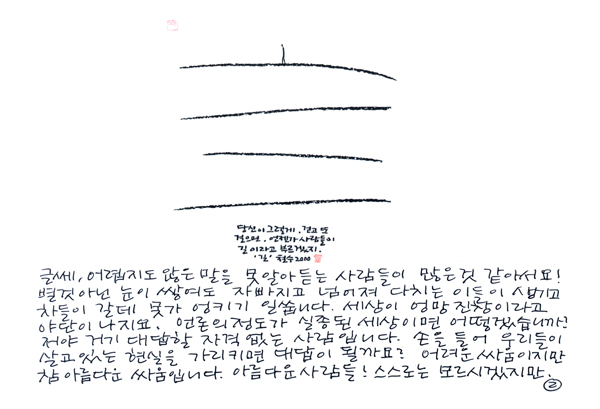 당신이 그렇게. 걷고 또
걸으면. 언젠가 사람들이
길이라고 부르겠지.
'길' 철수 2010
글쎄, 어렵지도 않은 말을 못 알아 듣는 사람들이 많은 것 같아서요!
별것 아닌 눈이 쌓여도 자빠지고 넘어져 다치는 이들이 생기고
차들이 갈데 못가 엉키기 일쑵니다. 세상이 엉망진창이라고
야단이 나지요. 언론의 정도가 실종된 세상이면 어떻겠습니까?
저야 거기 대답할 자격 없는 사람입니다. 손을 들어 우리들이
살고 있는 현실을 가리키면 대답이 될까요? 어려운 싸움이지만
참 아름다운 싸움입니다. 아름다운 사람들! 스스로는 모르시겠지만.
②